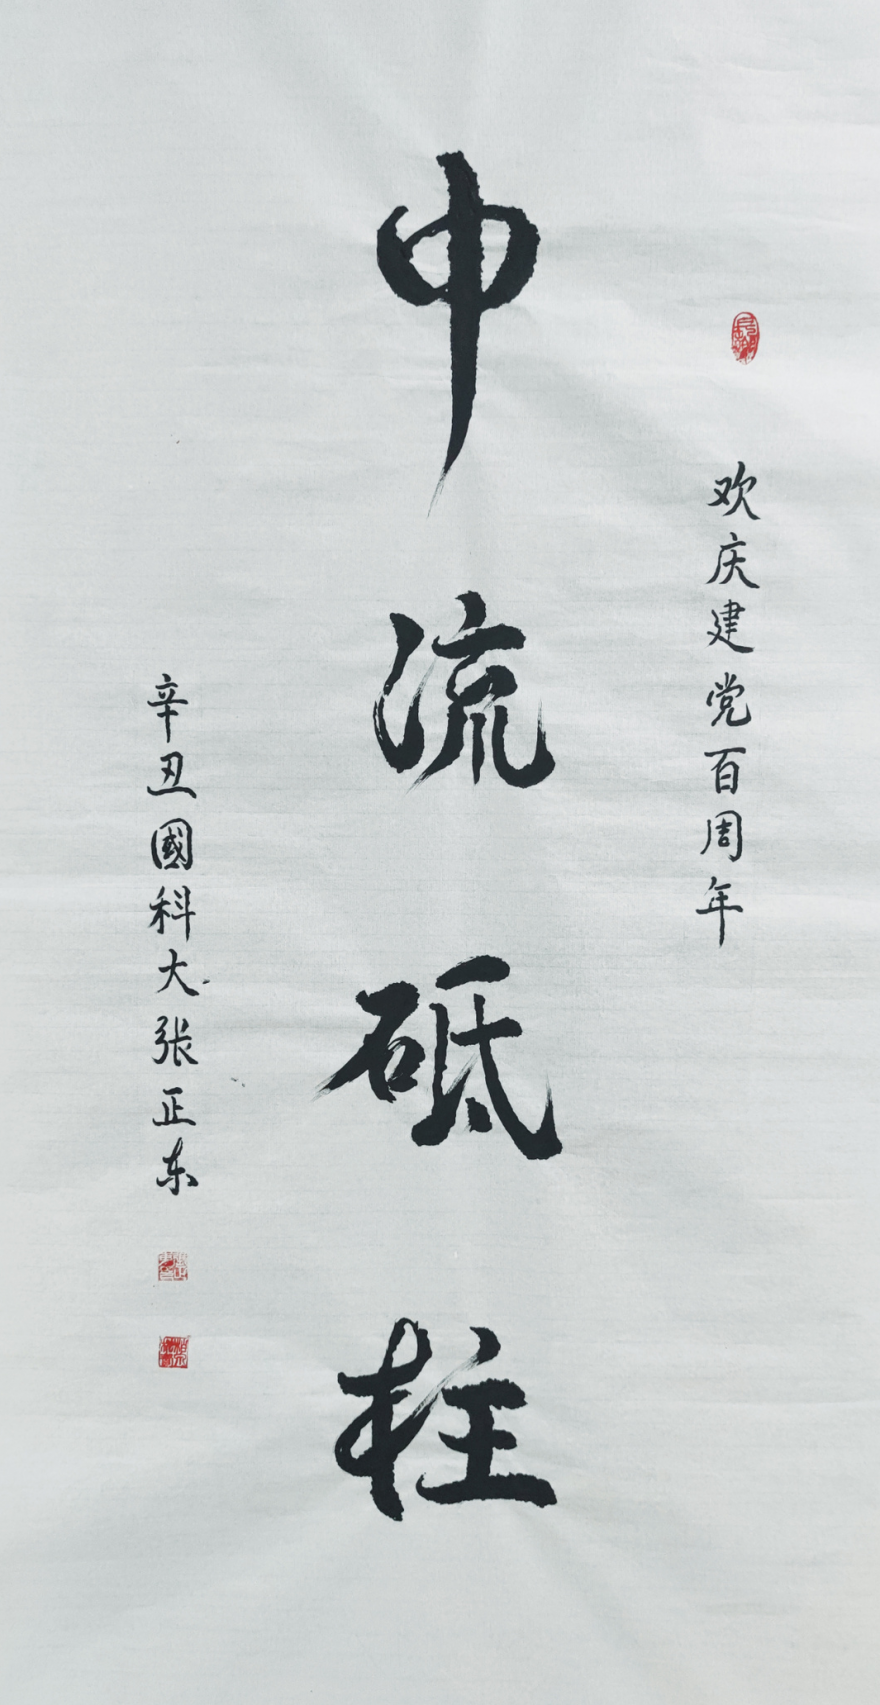 欢庆建党百周年
中流砥柱
辛丑國科大张正东